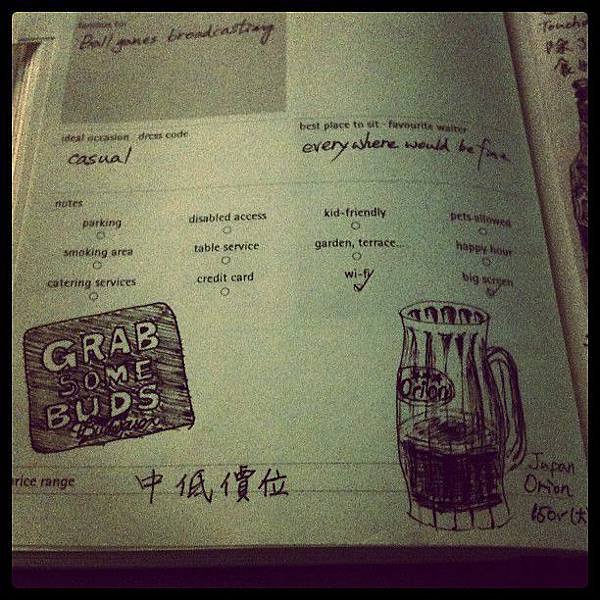 famous for
Ball games broadcasting
ideal occasion - dress code
casual
best place to sit - favourite waiter
everywhere would be fine
notes
parking
disabled access
kid-friendly
pets allowed
smoking area
table service
garden, terrace...
happy hour
catering services
credit card
wi-fi
big screen
GRAB
SOME
BUDS
Budweiser
Orion
price range
中低價位
Japan
Orion
Touche
除了
食